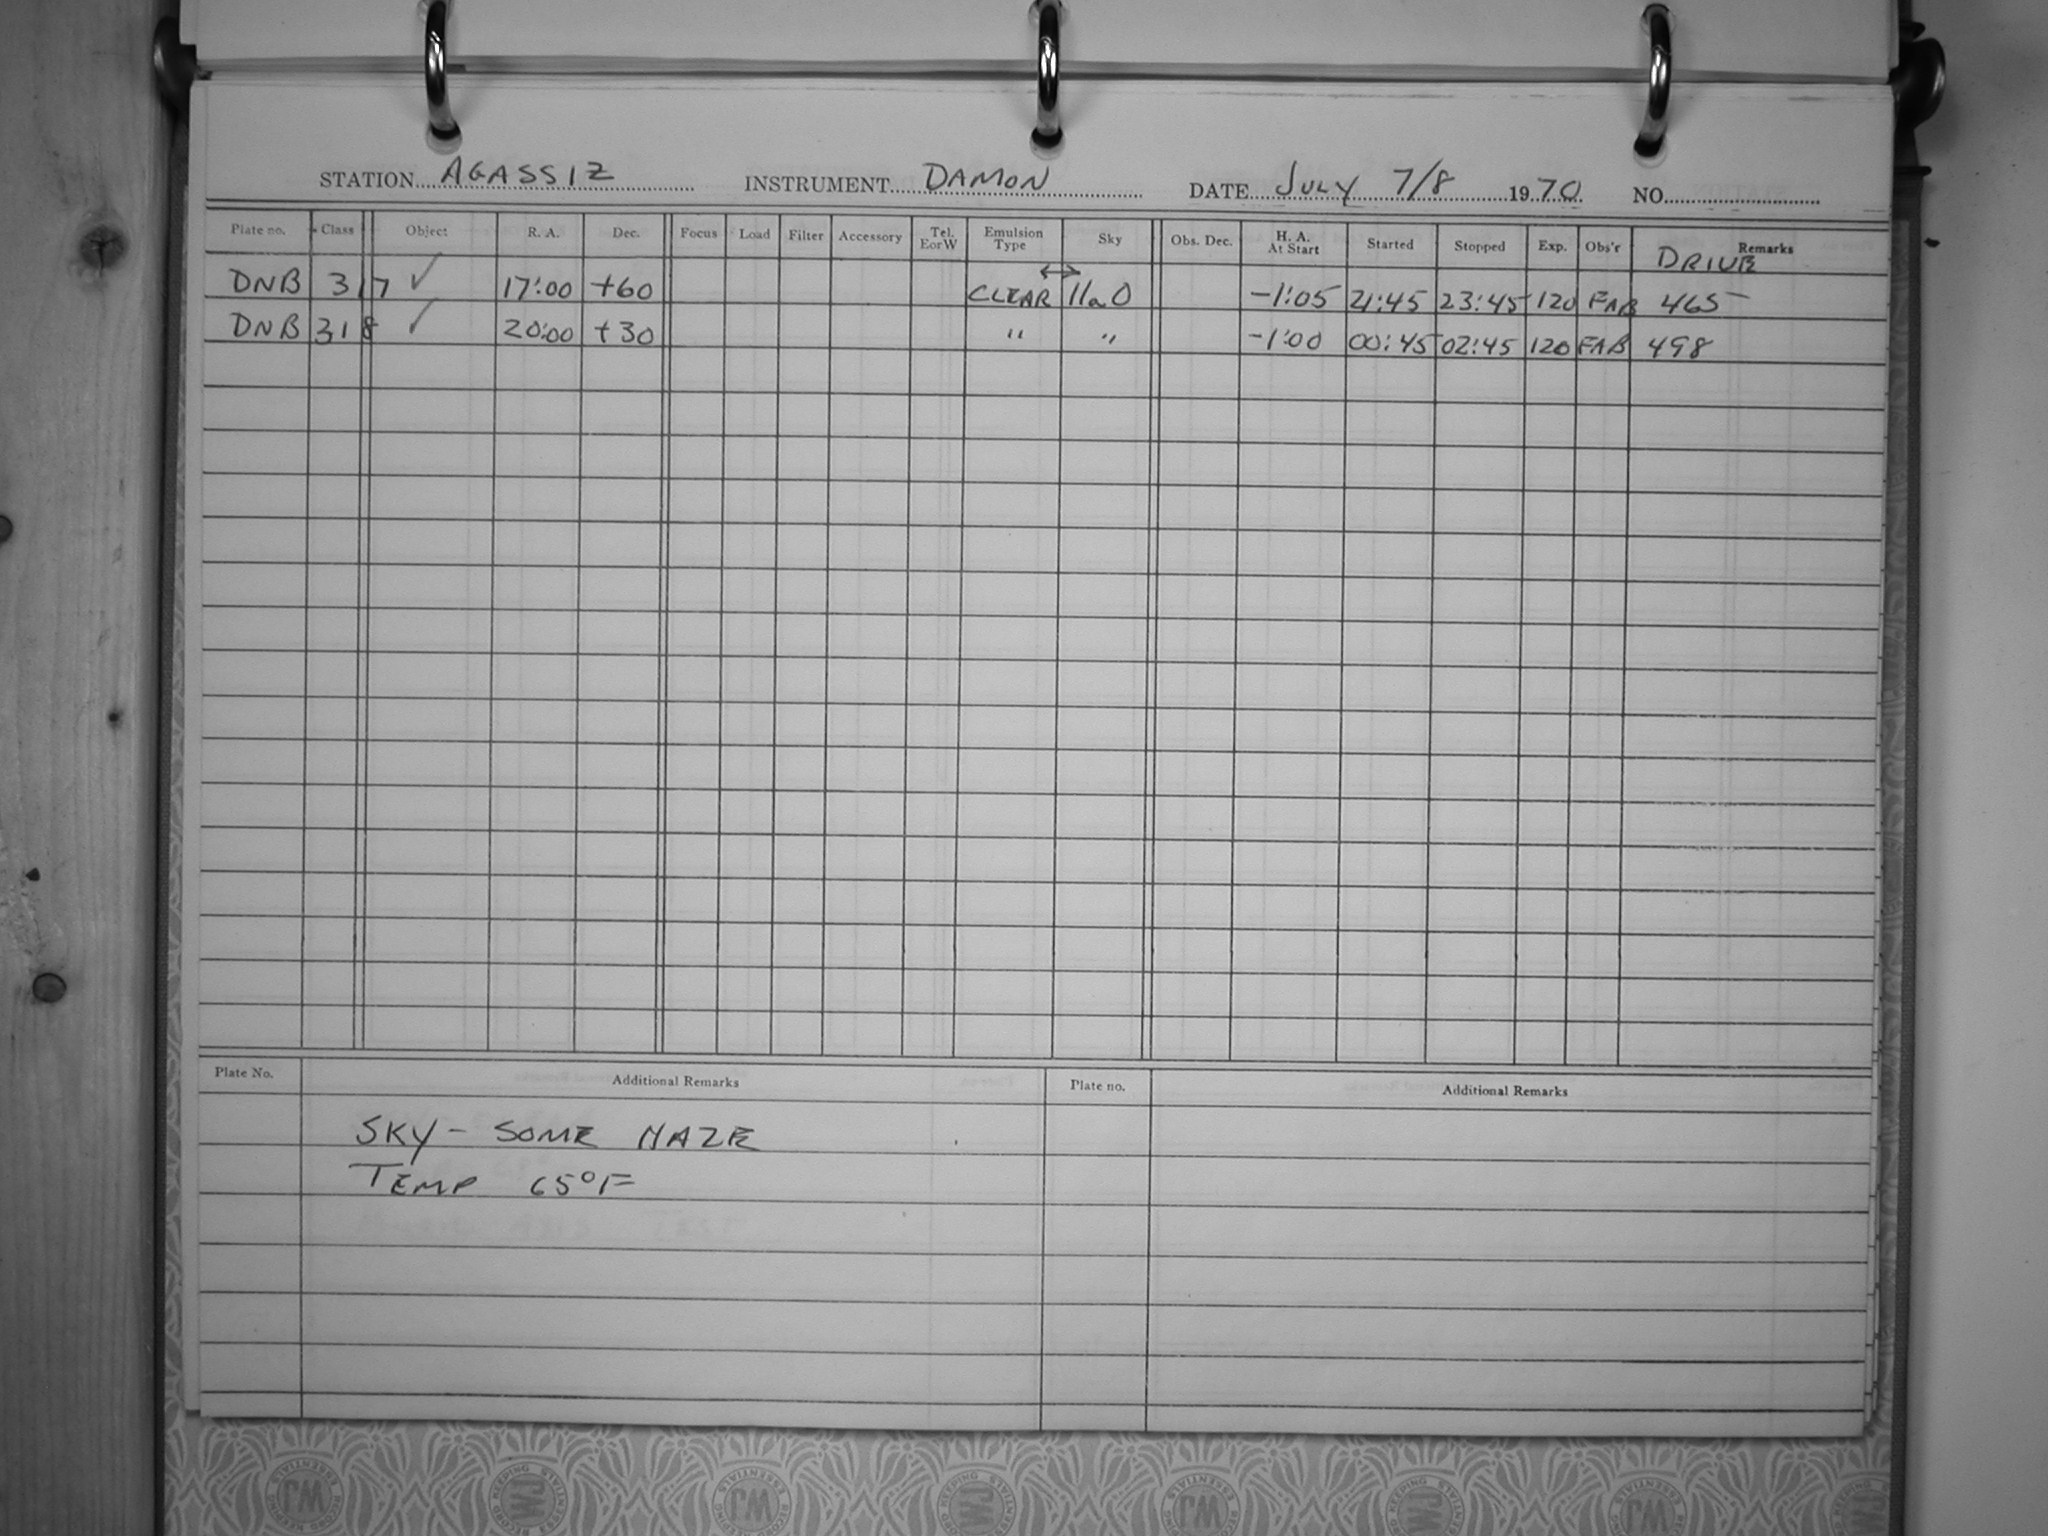 STATION AGASSIZ INSTRUMENT DAMON DATE JULY 7/8 1970 NO.
Plate no. Class Object R. A. Dec. Focus Load Filter Accessory Tel. E or W Emulsion Type Sky Obs. Dec. H. A. At Start Started Stopped Exp. Obs'r Remarks
DRIVE
DNB 317 ✓ 17:00 +60 CLEAR ↔ IIaO -1:05 21:45 23:45 120 FAB 465
DNB 318 ✓ 20:00 +30 " " -1:00 00:45 02:45 120 FAB 498
Plate No. Additional Remarks Plate no. Additional Remarks
SKY - SOME HAZE
TEMP 65°F